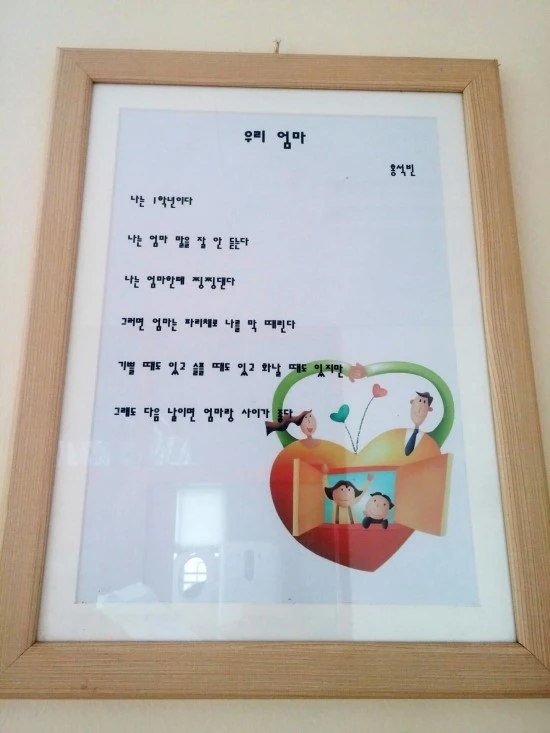 우리 엄마
홍석빈
나는 1학년이다
나는 엄마 말을 잘 안 듣는다
나는 엄마한테 찡찡댄다
그러면 엄마는 파리채로 나를 막 때린다
기쁠 때도 있고 슬플 때도 있고 화날 때도 있지만
그래도 다음 날이면 엄마랑 사이가 좋다